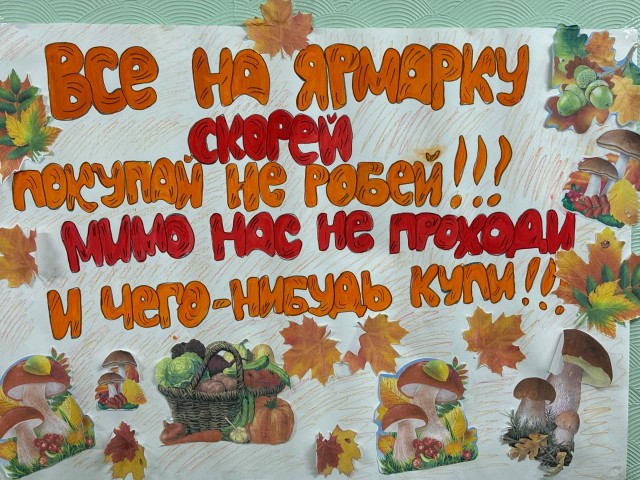 ВСЕ НА ЯРМАРКУ
СКОРЕЙ
ПОКУПАЙ НЕ РОБЕЙ!!!
МИМО НАС НЕ ПРОХОДИ
И ЧЕГО-НИБУДЬ КУПИ!!!